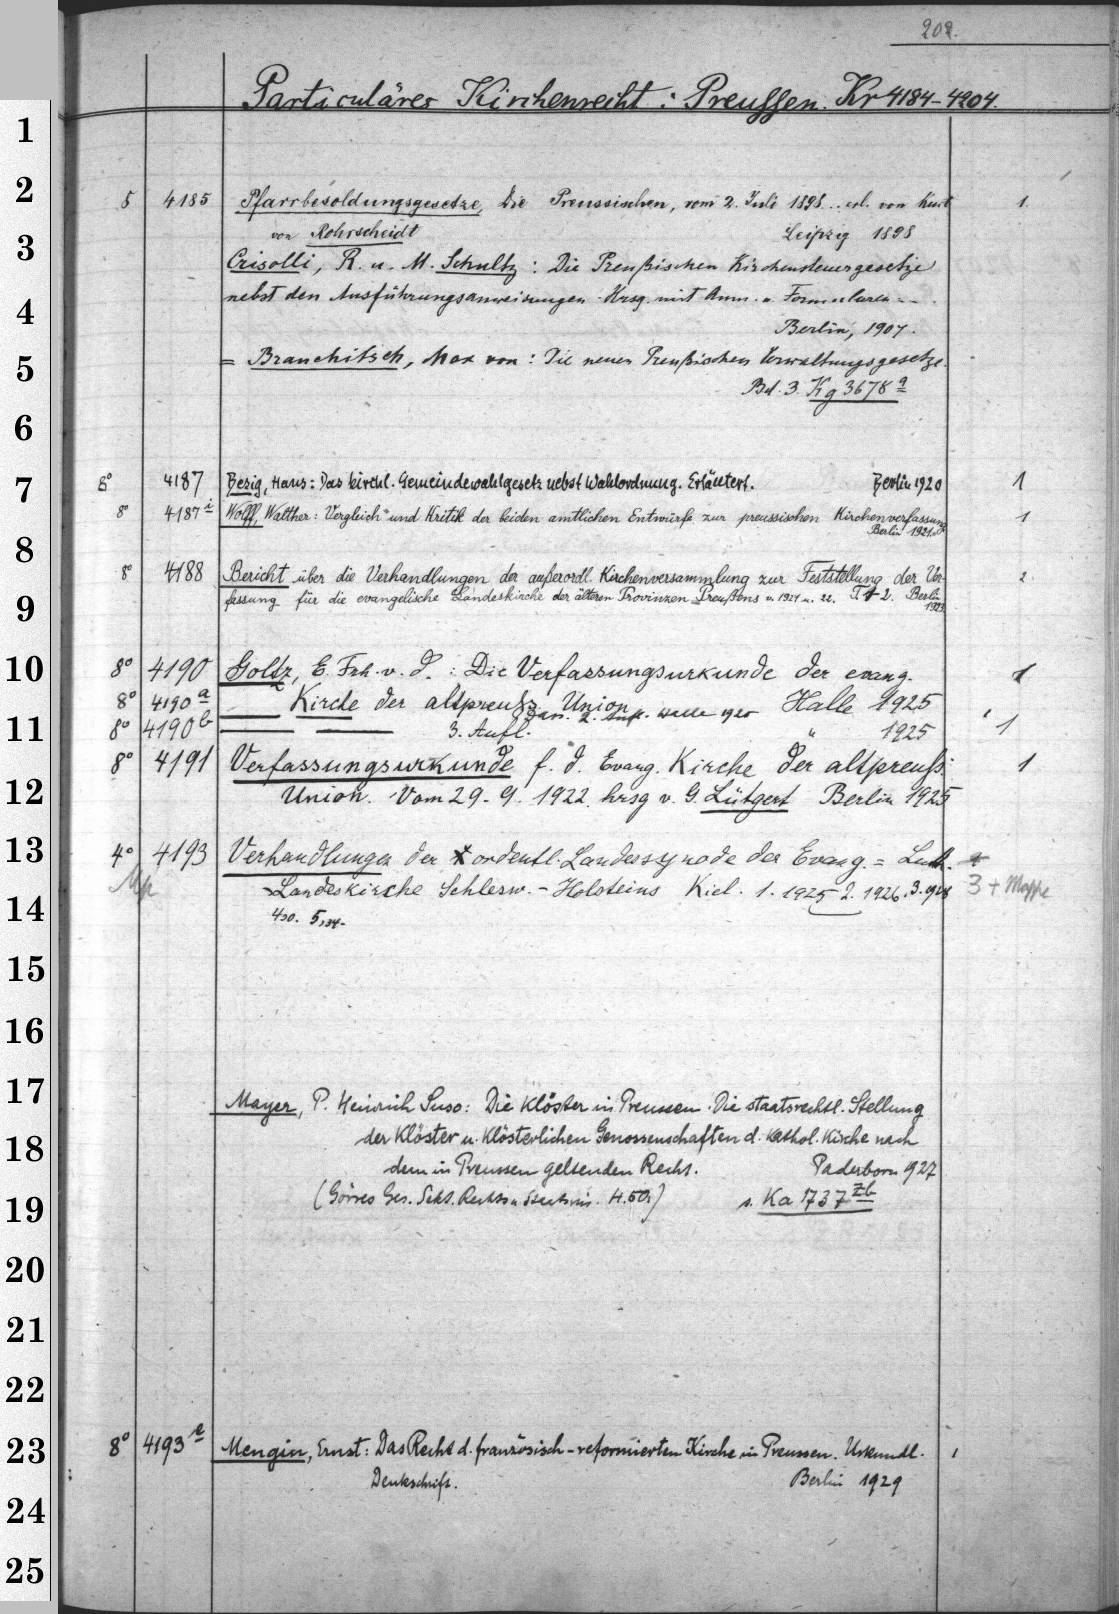 202.
Particuläres Kirchenrecht: Preussen. Kr 4184-4204.
1
2
8 4185 Pfarrbesoldungsgesetze, Die Preussischen, vom 2. Juli 1898... erl. von Kurt 1.
von Rohrscheidt Leipzig 1898
3
Crisolli, R. u. M. Schultz: Die Preußischen Kirchensteuergesetze
4
nebst den Ausführungsanweisungen. Hrsg. mit Anm. u. Formularen ...
Berlin, 1907.
5
= Brauchitsch, Max von: Die neuen Preußischen Verwaltungsgesetze.
Bd. 3. Kg 3678 a
6
7
8° 4187 Bezig, Hans: Das kirchl. Gemeindewahlgesetz nebst Wahlordnung. Erläutert. Berlin 1920 1
8° 4187 i Wolff, Walther: Vergleich und Kritik der beiden amtlichen Entwürfe zur preussischen Kirchenverfassung 1
Berlin 1921.
8
8° 4188 Bericht über die Verhandlungen der außerordl. Kirchenversammlung zur Feststellung der Ver- 2.
9
fassung für die evangelische Landeskirche der älteren Provinzen Preußens v. 1921 u. 22. T. 1-2. Berlin
1923.
10
8° 4190 Goltz, E. Frh. v. d.: Die Verfassungsurkunde der evang. 1
8° 4190 a Kirche der altpreuß. Union Halle 1925
Dass. 2. Aufl. Halle 1920
11
8° 4190 b 3. Aufl. " 1925 1
8° 4191 Verfassungsurkunde f. d. Evang. Kirche der altpreuß. 1
12
Union. Vom 29. 9. 1922 hrsg v. G. Lütgert Berlin 1925
13
4° 4193 Verhandlungen der ordentl. Landessynode der Evang.= Luth.
Mp Landeskirche Schlesw.-Holsteins Kiel. 1. 1925 2. 1926. 3. 1928 3 + Mappe
14
4,30. 5,34-
15
16
17
Mayer, P. Heinrich Suso: Die Klöster in Preussen. Die staatsrechtl. Stellung
18
der Klöster u. Klösterlichen Genossenschaften d. kathol. Kirche nach
dem in Preussen geltenden Recht. Paderborn 927
19
(Görres Ges. Sekt. Rechts u. Staatswis. H. 50.) s. Ka 1737 zb
20
21
22
23
8° 4193 e Mengin, Ernst: Das Recht d. französisch-reformierten Kirche in Preussen. Urkundl. 1
Denkschrift. Berlin 1929
24
25